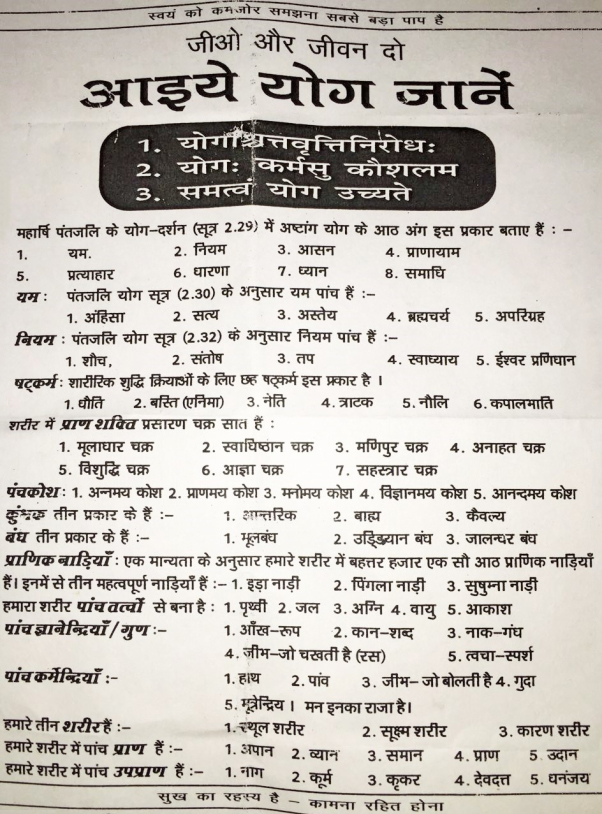 स्वयं को कमजोर समझना सबसे बड़ा पाप है
जीओ और जीवन दो
आइये योग जानें
1. योगश्चित्तवृत्तिनिरोधः
2. योगः कर्मसु कौशलम
3. समत्वं योग उच्यते
महार्षि पंतजलि के योग-दर्शन (सूत्र 2.29) में अष्टांग योग के आठ अंग इस प्रकार बताए हैं : –
1. यम. 2. नियम 3. आसन 4. प्राणायाम
5. प्रत्याहार 6. धारणा 7. ध्यान 8. समाधि
यम : पंतजलि योग सूत्र (2.30) के अनुसार यम पांच हैं :–
1. अंहिसा 2. सत्य 3. अस्तेय 4. ब्रह्मचर्य 5. अपरिग्रह
नियम : पंतजलि योग सूत्र (2.32) के अनुसार नियम पांच हैं :–
1. शौच, 2. संतोष 3. तप 4. स्वाध्याय 5. ईश्वर प्रणिघान
षट्कर्म : शारीरिक शुद्धि क्रियाओं के लिए छह षट्कर्म इस प्रकार है ।
1. धौति 2. बस्ति (एनिमा) 3. नेति 4. त्राटक 5. नौलि 6. कपालमाति
शरीर में प्राण शक्ति प्रसारण चक्र सात हैं :
1. मूलाघार चक्र 2. स्वाघिष्ठान चक्र 3. मणिपुर चक्र 4. अनाहत चक्र
5. विशुद्धि चक्र 6. आज्ञा चक्र 7. सहस्त्रार चक्र
पंचकोश : 1. अन्नमय कोश 2. प्राणमय कोश 3. मनोमय कोश 4. विज्ञानमय कोश 5. आनन्दमय कोश
कुंभक तीन प्रकार के हैं :– 1. आन्तरिक 2. बाह्य 3. कैवल्य
बंघ तीन प्रकार के हैं :– 1. मूलबंघ 2. उड्डियान बंघ 3. जालन्धर बंघ
प्राणिक नाड़ियाँ : एक मान्यता के अनुसार हमारे शरीर में बहत्तर हजार एक सौ आठ प्राणिक नाड़ियाँ
हैं। इनमें से तीन महत्वपूर्ण नाड़ियाँ हैं :– 1. इड़ा नाड़ी 2. पिंगला नाड़ी 3. सुषुम्ना नाड़ी
हमारा शरीर पांच तत्वों से बना है : 1. पृथ्वी 2. जल 3. अग्नि 4. वायु 5. आकाश
पांच ज्ञानेन्द्रियाँ/गुण :– 1. आँख-रूप 2. कान-शब्द 3. नाक-गंध
4. जीभ-जो चखती है (रस) 5. त्वचा-स्पर्श
पांच कर्मेन्द्रियाँ :– 1. हाथ 2. पांव 3. जीभ- जो बोलती है 4. गुदा
5. मूत्रेन्द्रिय । मन इनका राजा है।
हमारे तीन शरीर हैं :– 1. स्थूल शरीर 2. सूक्ष्म शरीर 3. कारण शरीर
हमारे शरीर में पांच प्राण हैं :– 1. अपान 2. व्यान 3. समान 4. प्राण 5. उदान
हमारे शरीर में पांच उपप्राण हैं :– 1. नाग 2. कूर्म 3. कृकर 4. देवदत्त 5. धनंजय
सुख का रहस्य है – कामना रहित होना